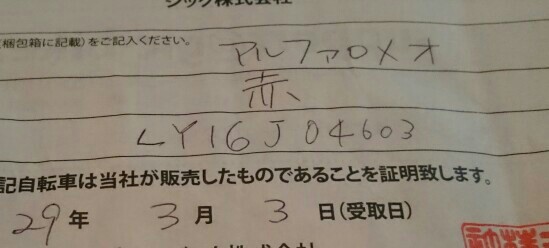 シック株式会社
梱包箱に記載)をご記入ください。
アルファロメオ
赤
LY16J04603
記自転車は当社が販売したものであることを証明致します。
29年 3月 3日(受取日)
株式会社